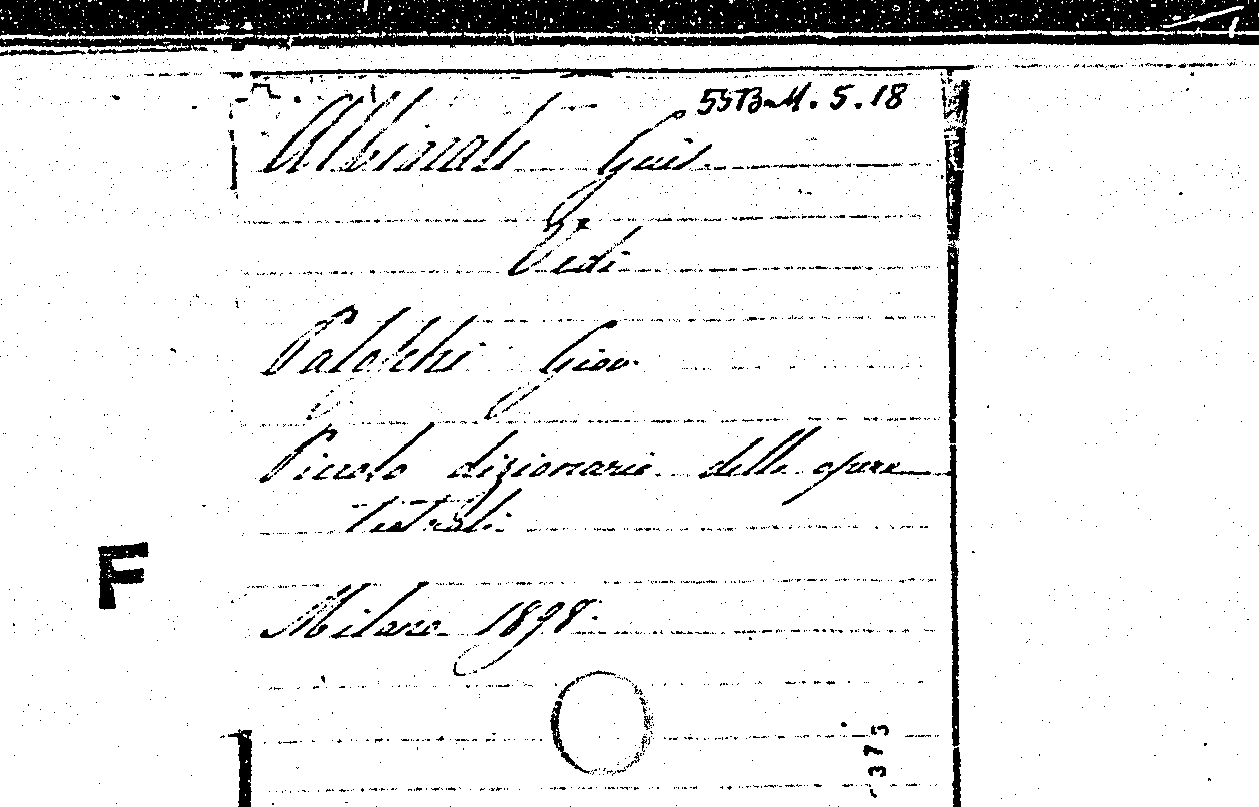 55B-M.5.18
Albinati Gius.
Vedi
Paloschi Giov.
Piccolo dizionario delle opere
teatrali
Milano 1898
F
375